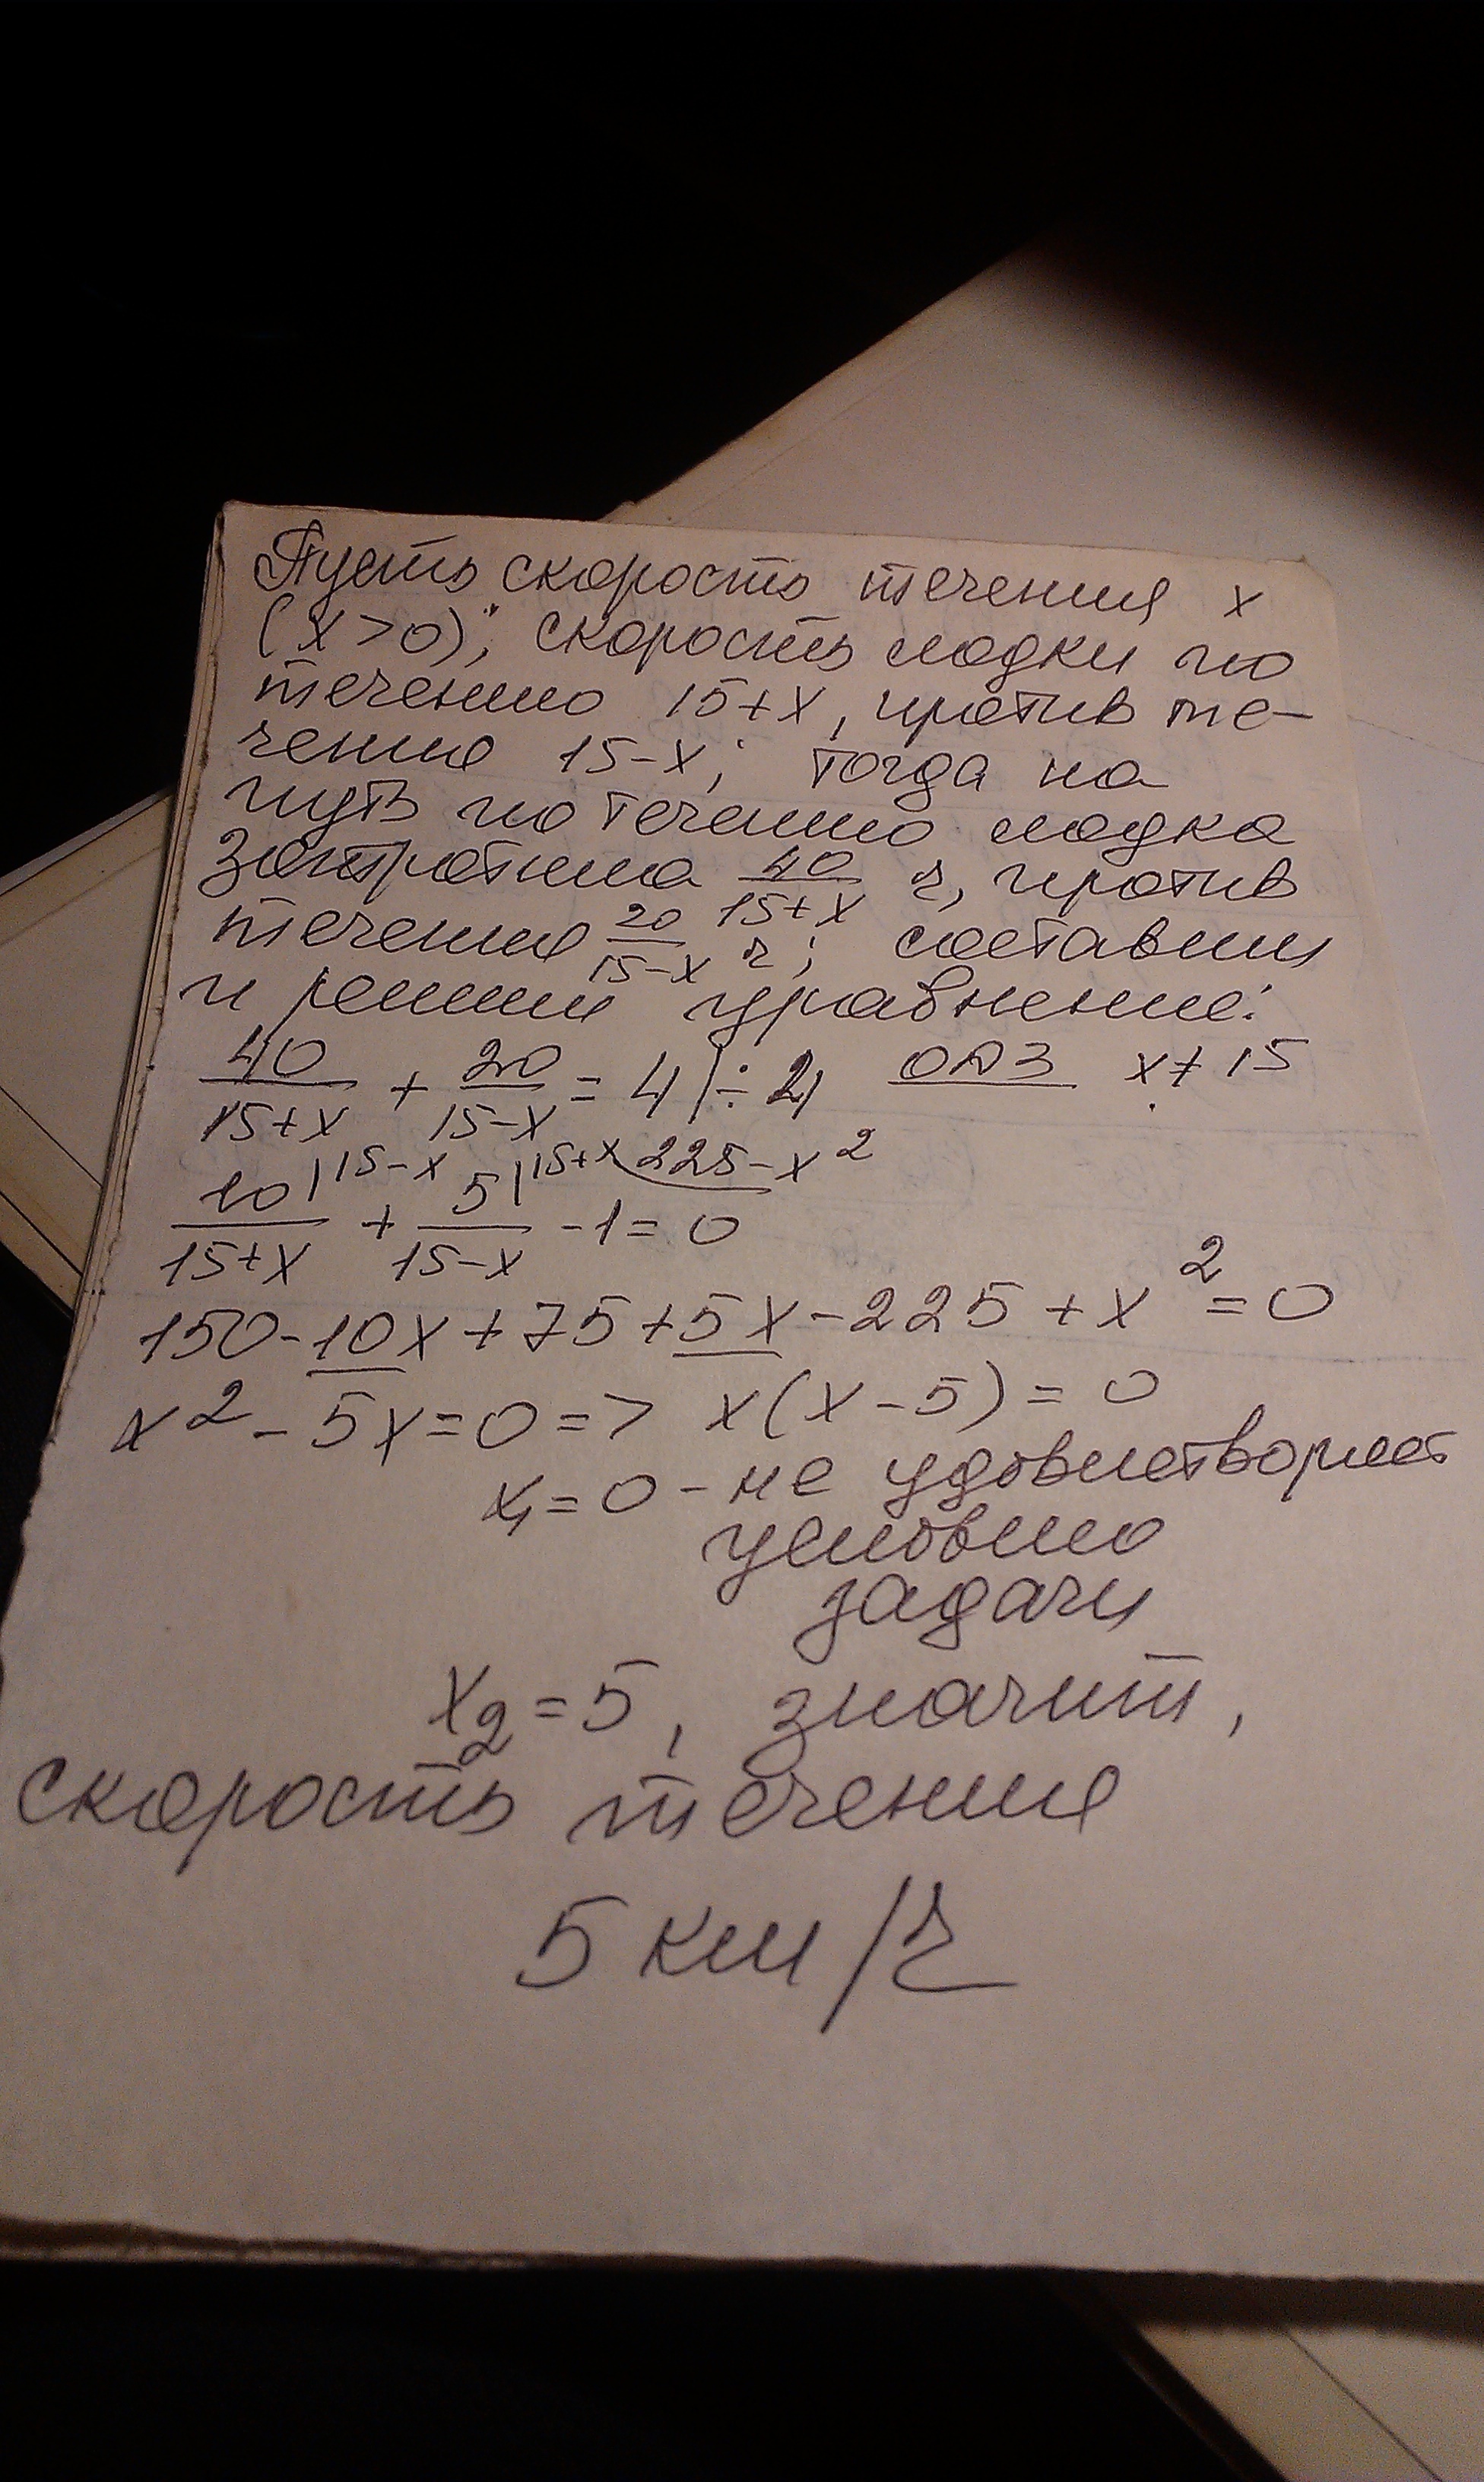 Пусть скорость течения x
(x>0); скорость лодки по
течению 15+x, против те-
чения 15-x; тогда на
путь по течению лодка
затратила 40/(15+x) ч, против
течения 20/(15-x) ч; составим
и решим уравнение:
40/(15+x) + 20/(15-x) = 4 |÷4 ОДЗ x≠15
10/(15+x) |15-x + 5/(15-x) |15+x - 1 = 0 225-x²
150-10x+75+5x-225+x²=0
x²-5x=0=> x(x-5)=0
x₁=0 - не удовлетворяет
условию
задачи
x₂=5, значит,
скорость течения
5 км/ч